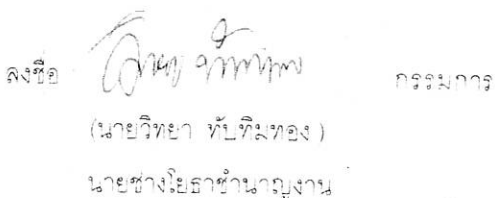 ลงชื่อ กรรมการ
(นายวิทยา ทับทิมทอง)
นายช่างโยธาชำนาญงาน